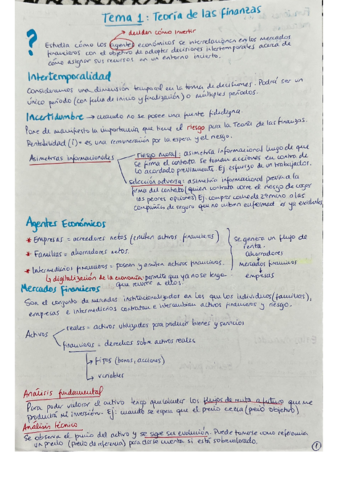 Tema 1: Teoría de las finanzas
deciden cómo invertir
?
Estudia cómo los agentes económicos se interrelacionan en los mercados
financieros con el objetivo de adoptar decisiones intertemporales acerca de
cómo asignar sus recursos en un entorno incierto.
Intertemporalidad
Consideramos una dimensión temporal en la toma de decisiones. Podrá ser un
único periodo (con fecha de inicio y finalización) o múltiples periodos.
Incertidumbre → cuando no se posee una fuente fidedigna
Pone de manifiesto la importancia que tiene el riesgo para la Teoría de las finanzas.
Rentabilidad (i) = es una remuneración por la espera y el riesgo.
Asimetrías informacionales
riesgo moral: asimetría informacional luego de que
se firma el contrato. Se toman acciones en contra de
lo acordado previamente. Ej esfuerzo de un trabajador.
selección adversa: asimetría informacional previa a la
firma del contrato (quien contrata corre el riesgo de coger
las peores opciones) Ej comprar coche de 2ª mano o las
compañías de seguro que no saben su enfermed
Agentes Económicos
* Empresas = acreedores netos (emiten activos financieros)
* Familias = ahorradores netos.
* Intermediarios financieros = poseen y emiten activos financieros.
↳ digitalización de la economía: permite que ya no se tenga
que recurrir a ellos.
se genera un flujo de
renta.
ahorradores
↓
mercados financieros
↓
empresas
Mercados Financieros
Son el conjunto de mercados institucionalizados en los que los individuos (familias),
empresas e intermediarios contratan e intercambian activos financieros y riesgo.
Activos
reales = activos utilizados para producir bienes y servicios
financieros = derechos sobre activos reales
→ fijos (bonos, acciones)
→ variables
Análisis fundamental
Para poder valorar el activo tengo que los flujos de renta a futuro que me
producirá mi inversión. Ej: cuando se espera que el precio crezca (precio objetivo)
Análisis técnico
Se observa el precio del activo y se sigue su evolución. Puede tomarse como referencia
un precio (precio de referencia) para darse cuenta si está sobrevalorado.
1